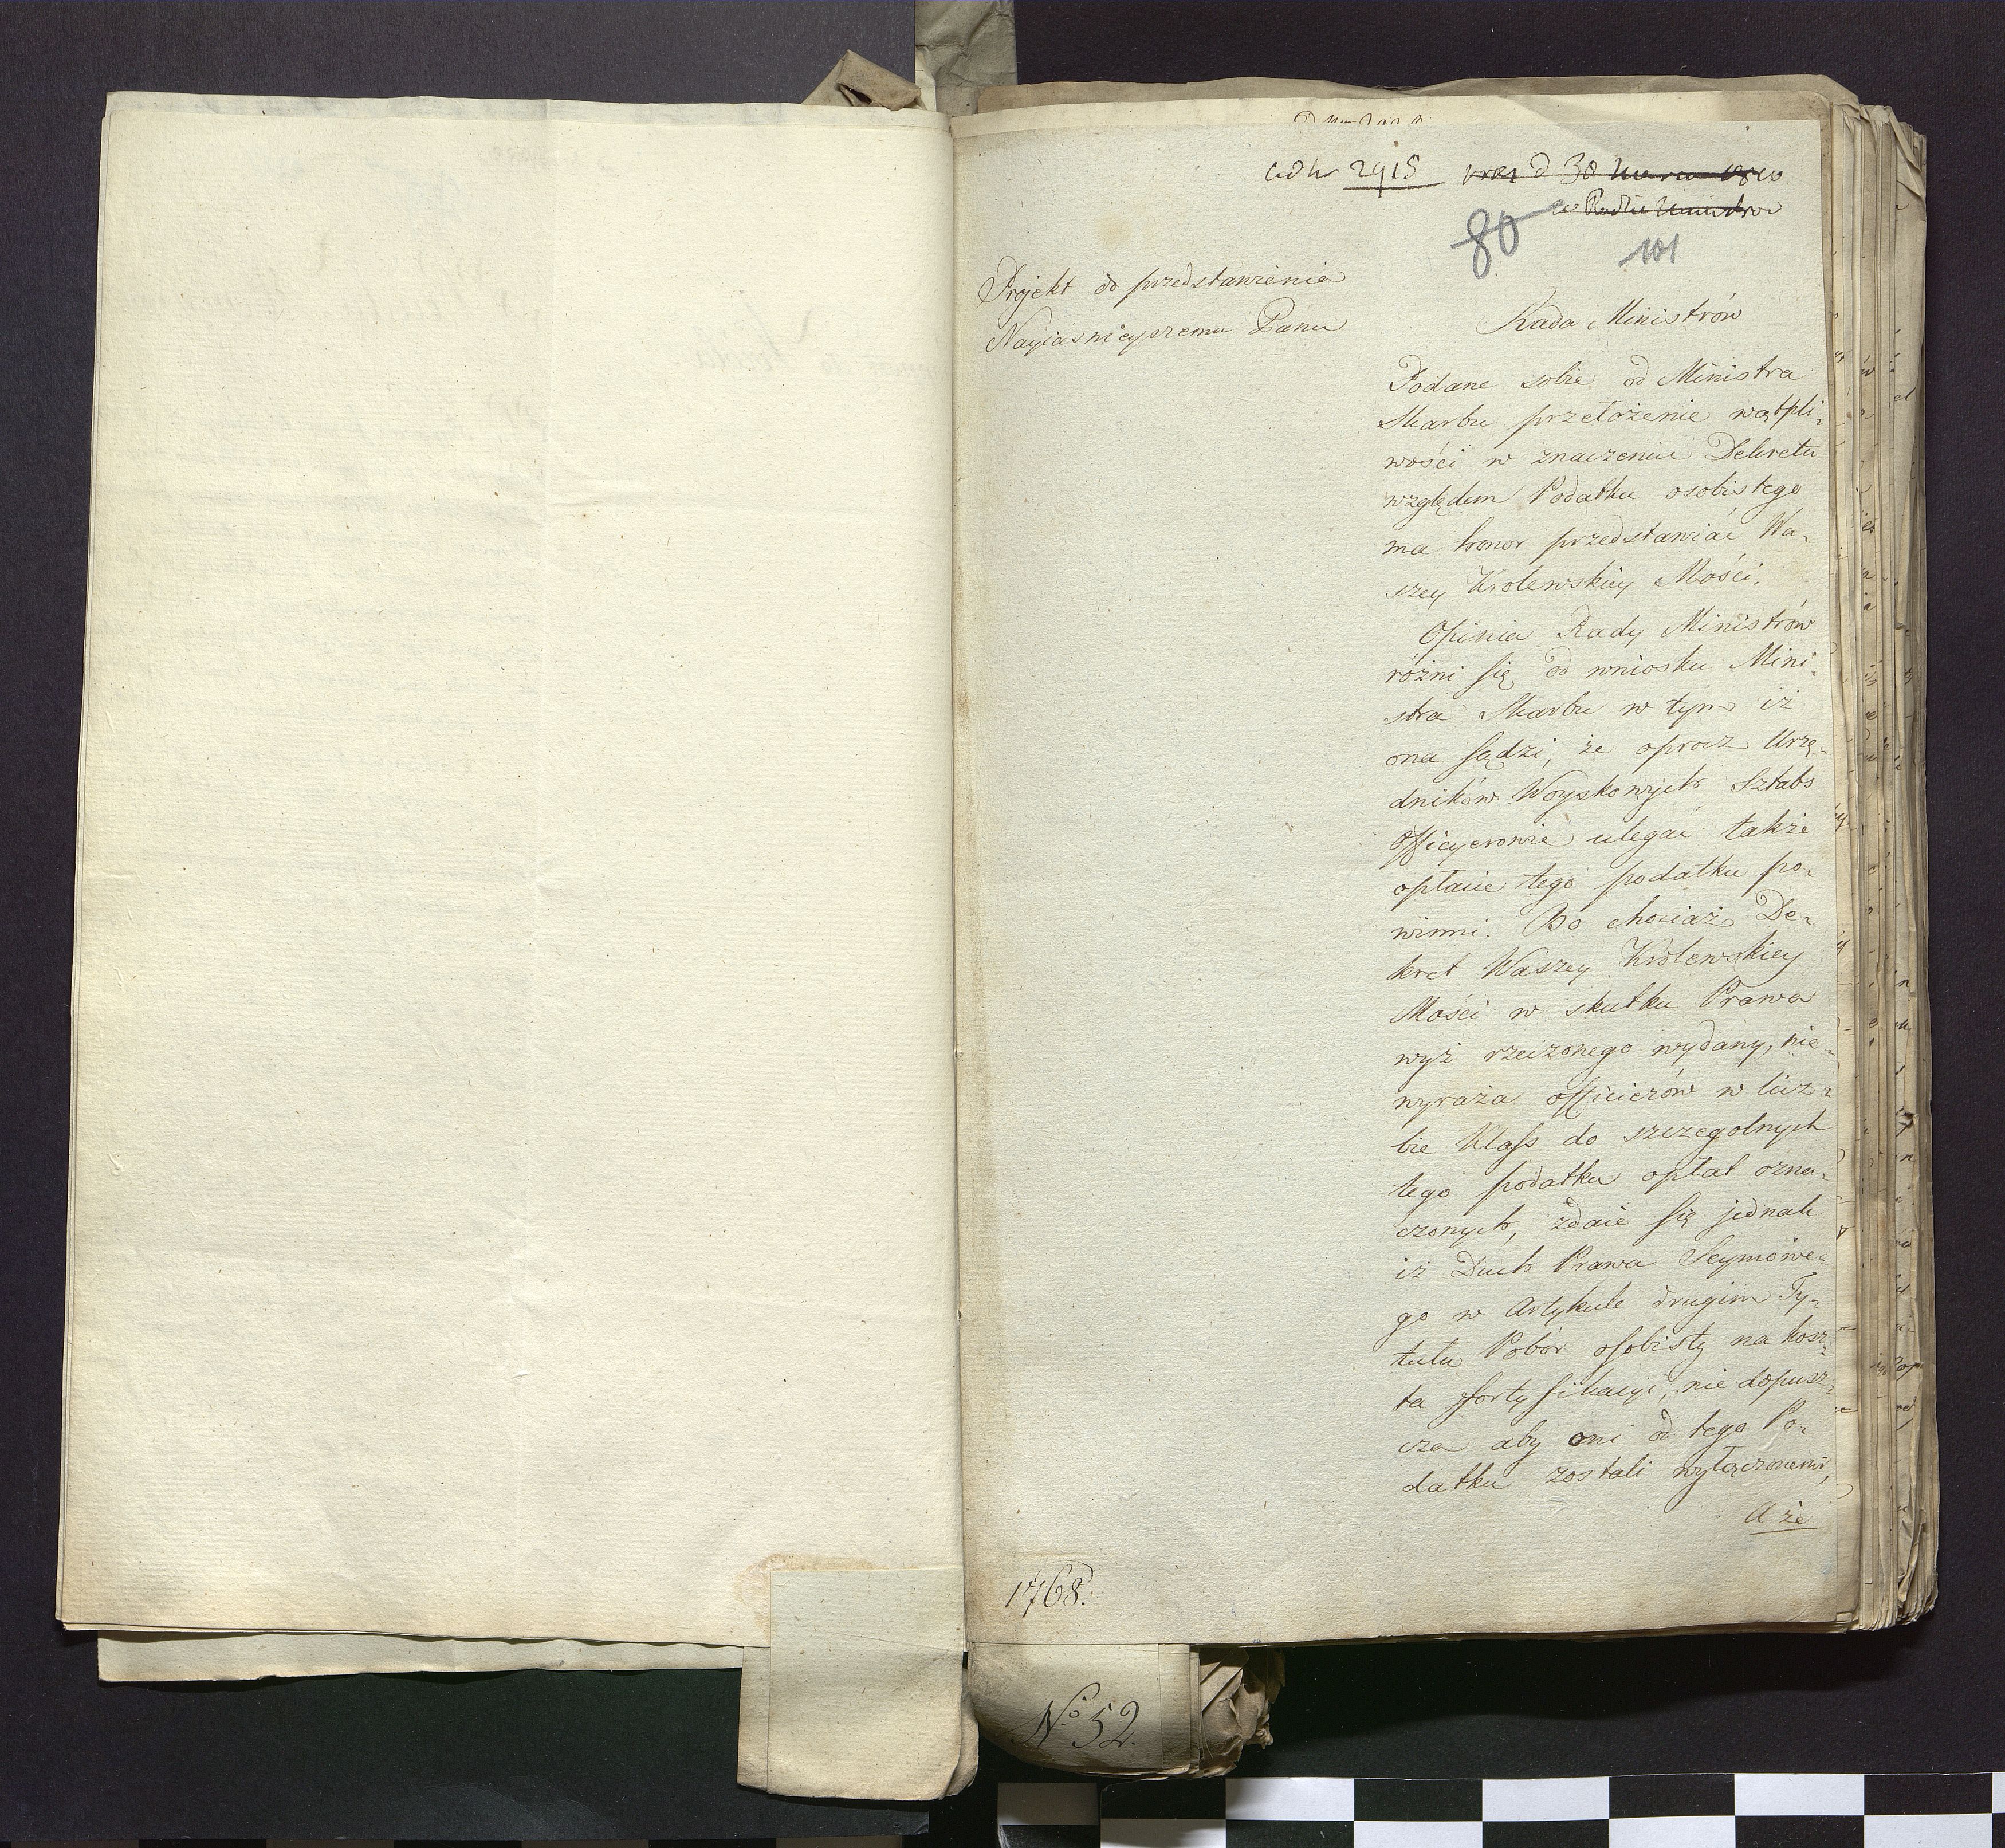 ad N 2915 d 30 Marca 1810
w Radzie Ministrów
80
101
Projekt do przedstawienia
Nayiasnieyszemu Panu
Rada Ministrów
Podane sobie od Ministra
Skarbu przełożenie wątpli-
wości w znaczeniu Dekretu
względem Podatku osobistego
ma honor przedstawiać Wa-
szey Krolewskiey Mości.
Opinia Rady Ministrów
różni się od wniosku Mini-
stra Skarbu w tym iż
ona sądzi, że oprocz Urzę-
dników Woyskowych Sztabs
Officyerowie ulegać także
opłacie tego podatku po-
winni. Bo chociaż De-
kret Waszey Krolewskiey
Mości w skutku Prawa
wyż rzeczonego wydany, nie-
wyraża officierów w licz-
bie Klass do szczegolnych
tego podatku opłat ozna-
czonych, zdaie się jednak
iż Duch Prawa Seymowe-
go w Artykule drugim Ty-
tułu Pobór osobisty na kosz-
ta fortyfikacyi, nie dopusz-
cza aby oni od tego Po-
datku zostali wyłączonemi,
A że
1768.
No 52.